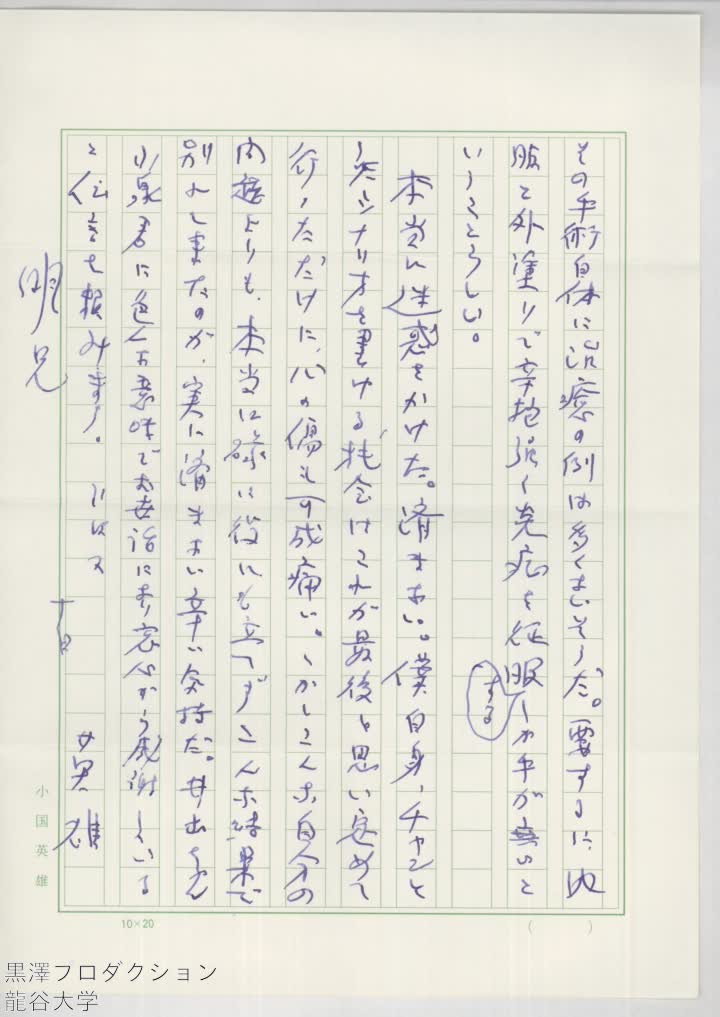 その手術自体に治癒の例は多くないそうだ。要するに、内
服と外塗りで辛抱強く炎症を征服するしか手が無いと
いうことらしい。
本当に迷惑をかけた。済まない。僕自身、チャンと
したシナリオを書ける機会はこれが最後と思い定めて
行っただけに、心の傷も可成痛い。しかしこんな自分の
問題よりも、本当に碌に役にも立てずこんな結果で
別れしまたのが、実に済まない辛い気持だ。井出さん
小泉君に色々な意味でお世話になり衷心から感謝している
と伝言を頼みます。
明兄
英雄
小国英雄
10×20
( )
黒澤プロダクション
龍谷大学